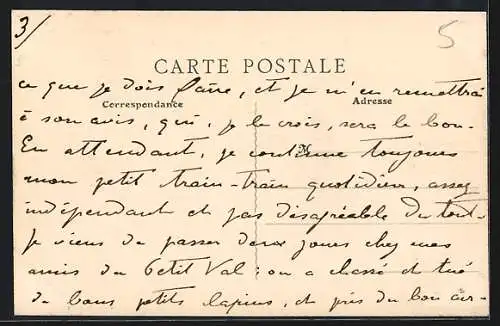 3/
5
CARTE POSTALE
ce que je dois faire, et je m'en remettrai
Correspondance
Adresse
à son avis, qui, je le crois, sera le bon.
M
En attendant, je continue toujours
mon petit train-train quotidien, assez
indépendant et pas désagréable du tout.
Je viens de passer deux jours chez mes
amis du Petit Val: on a chassé et tué
de bons petits lapins, et pris du bon air.